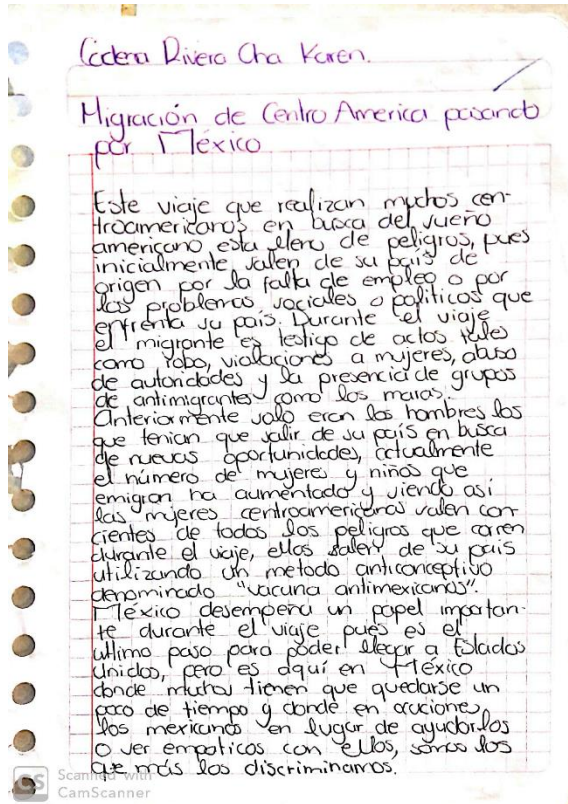 Cadena Rivera Cha Karen.
Migración de Centro America pasando
por México
Este viaje que realizan muchos cen-
troamericanos en busca del sueño
americano esta lleno de peligros, pues
inicialmente salen de su país de
origen por la falta de empleo o por
los problemas sociales o politicos que
enfrenta su país. Durante el viaje
el migrante es testigo de actos tales
como robo, violaciones a mujeres, abuso
de autoridades y la presencia de grupos
de antimigrantes como los maras.
Anteriormente solo eran los hombres los
que tenian que salir de su país en busca
de nuevas oportunidades, actualmente
el número de mujeres y niños que
emigran ha aumentado y siendo así
las mujeres centroamericanas salen con-
cientes de todos los peligros que corren
durante el viaje, ellas salen de su país
utilizando un metodo anticonceptivo
denominado "vacuna antimexicanos".
México desempeña un papel importan-
te durante el viaje pues es el
ultimo paso para poder llegar a Estados
Unidos, pero es aquí en México
donde muchos tienen que quedarse un
poco de tiempo y donde en ocaciones,
los mexicanos en lugar de ayudarlos
o ser empaticos con ellos, somos los
que más los discriminamos.
CS Scanned with
CamScanner